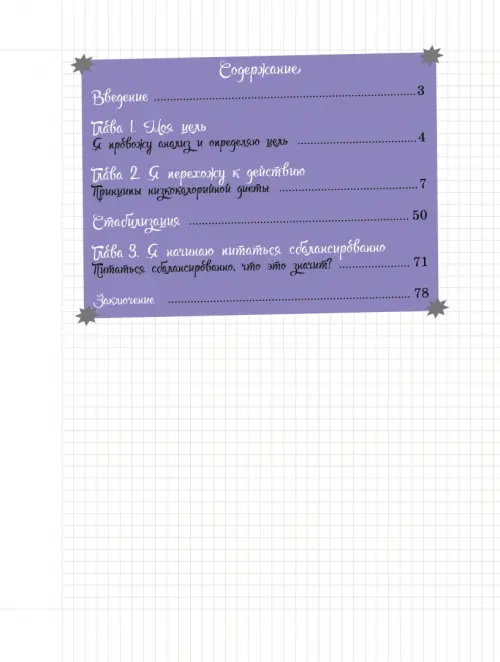 Содержание
Введение 3
Глава 1. Моя цель
Я провожу анализ и определяю цель 4
Глава 2. Я перехожу к действию
Принципы низкокалорийной диеты 7
Стабилизация 50
Глава 3. Я начинаю питаться сбалансированно
Питаться сбалансированно, что это значит? 71
Заключение 78